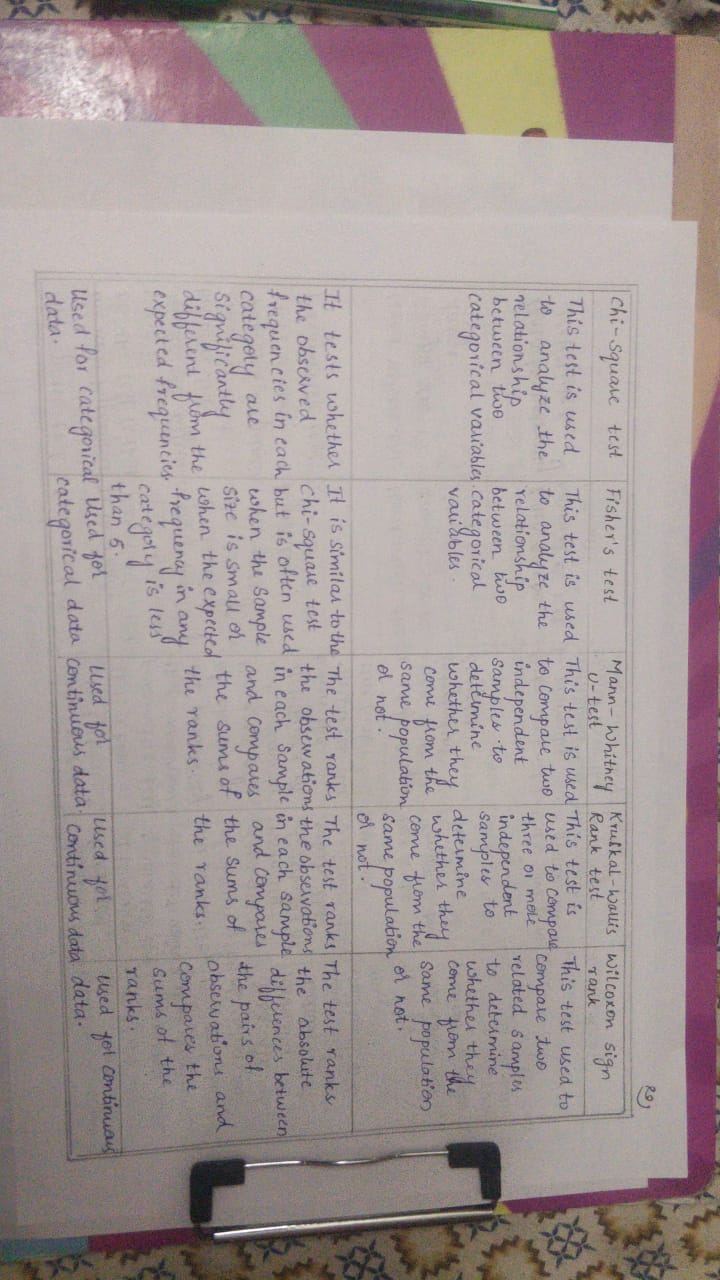 Chi-Square test
Fisher's test
Mann-Whitney
U-test
Kruskal-Wallis
Rank test
Wilcoxon sign
rank.
This test is used
to analyze the
relationship
between two
categorical variables.
This test is used
to analyze the
relationship
between two
categorical
variables.
This test is used
to compare two
independent
samples to
determine
whether they
come from the
same population
or not.
This test is
used to compare
three or more
independent
samples to
determine
whether they
come from the
same population
or not.
This test used to
compare two
related samples
to determine
whether they
come from the
same population
or not.
It tests whether
the observed
frequencies in each
category are
significantly
different from the
expected frequencies
It is similar to the
chi-square test
but is often used
when the sample
size is small or
when the expected
frequency in any
category is less
than 5.
The test ranks
the observations
in each sample
and compares
the sums of
the ranks.
The test ranks
the observations
in each sample
and compares
the sums of
the ranks.
The test ranks
the absolute
differences between
the pairs of
observations and
compares the
sums of the
ranks.
Used for categorical
data.
Used for
categorical data
Used for
continuous data.
Used for
continuous data
Used for continuous
data.